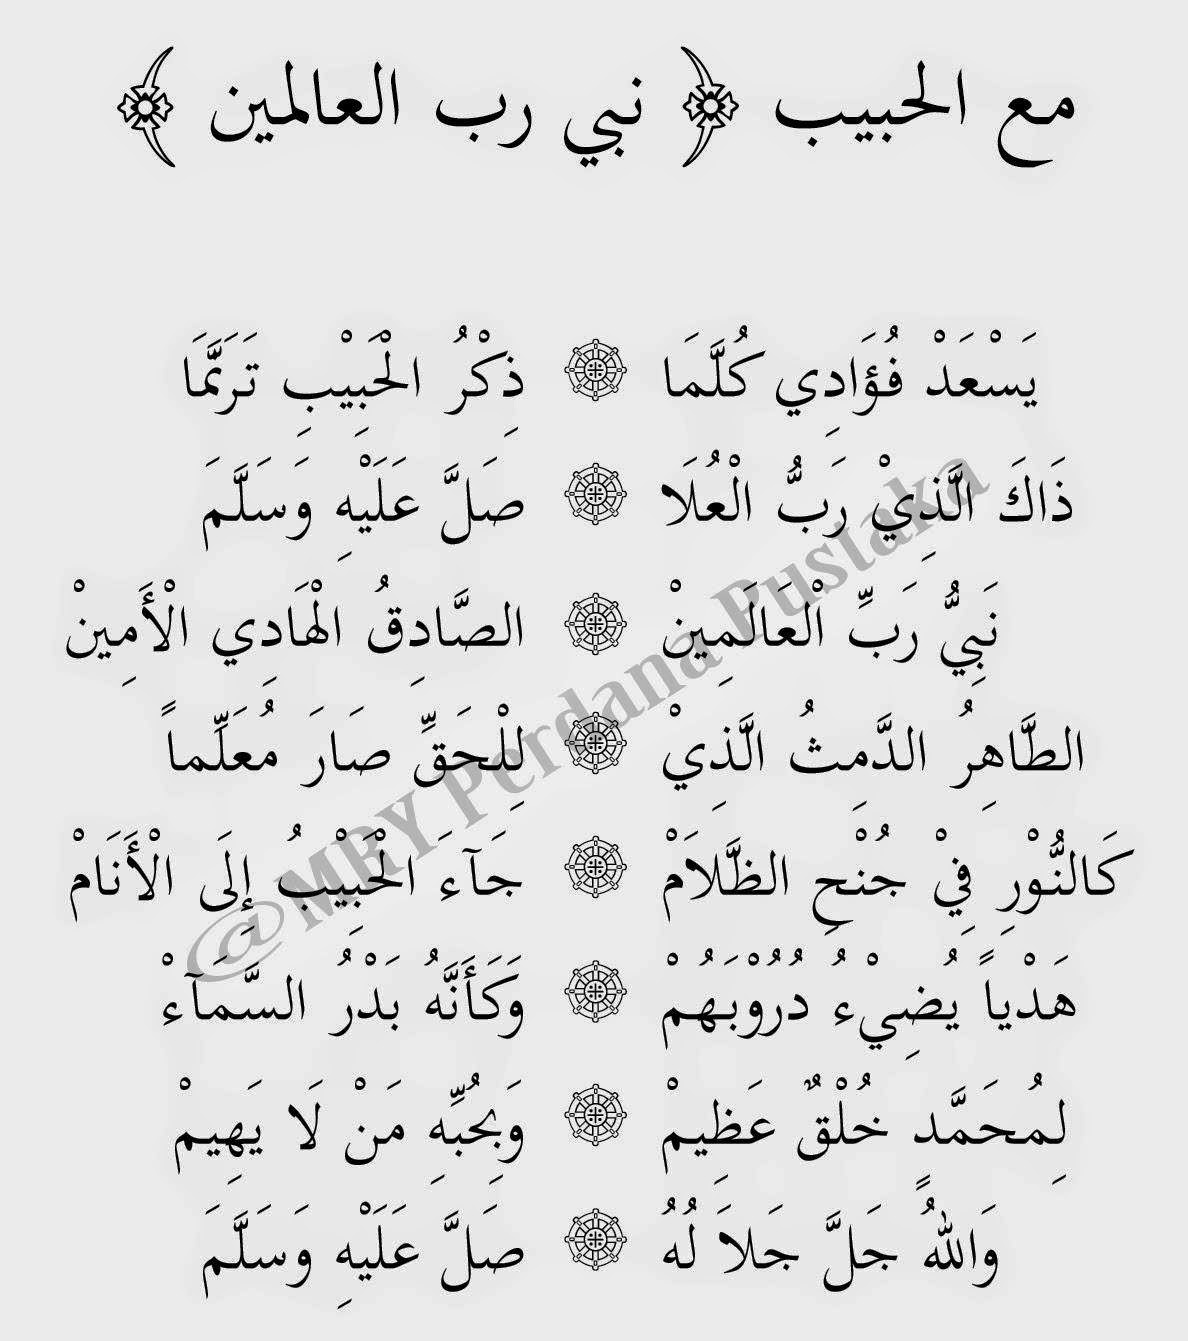 مع الحبيب ﴿ نبي رب العالمين ﴾
يَسْعَدْ فُؤَادِي كُلَّمَا ۞ ذِكْرُ الْحَبِيْبِ تَرَنَّمَا
ذَاكَ الَّذِيْ رَبُّ الْعُلَا ۞ صَلَّ عَلَيْهِ وَسَلَّمَ
نَبِيُّ رَبِّ الْعَالَمِينْ ۞ الصَّادِقُ الْهَادِي الْأَمِينْ
الطَّاهِرُ الدَّمِثُ الَّذِيْ ۞ لِلْحَقِّ صَارَ مُعَلِّماً
كَالنُّوْرِ فِيْ جُنْحِ الظَّلَامْ ۞ جَآءَ الْحَبِيْبُ إِلَى الْأَنَامْ
هَدْياً يُضِيْءُ دُرُوْبَهُمْ ۞ وَكَأَنَّهُ بَدْرُ السَّمَآءْ
لِمُحَمَّدٍ خُلْقٌ عَظِيمْ ۞ وَبِحُبِّهِ مَنْ لَا يَهِيمْ
وَاللهُ جَلَّ جَلَا لُهُ ۞ صَلَّ عَلَيْهِ وَسَلَّمَ
@MRY Perdana Pustaka